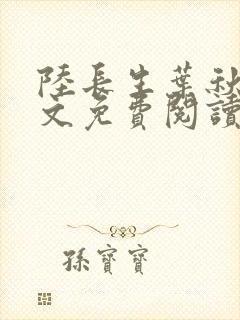 陸長生葉秋
文免費閱讀
孫寶寶